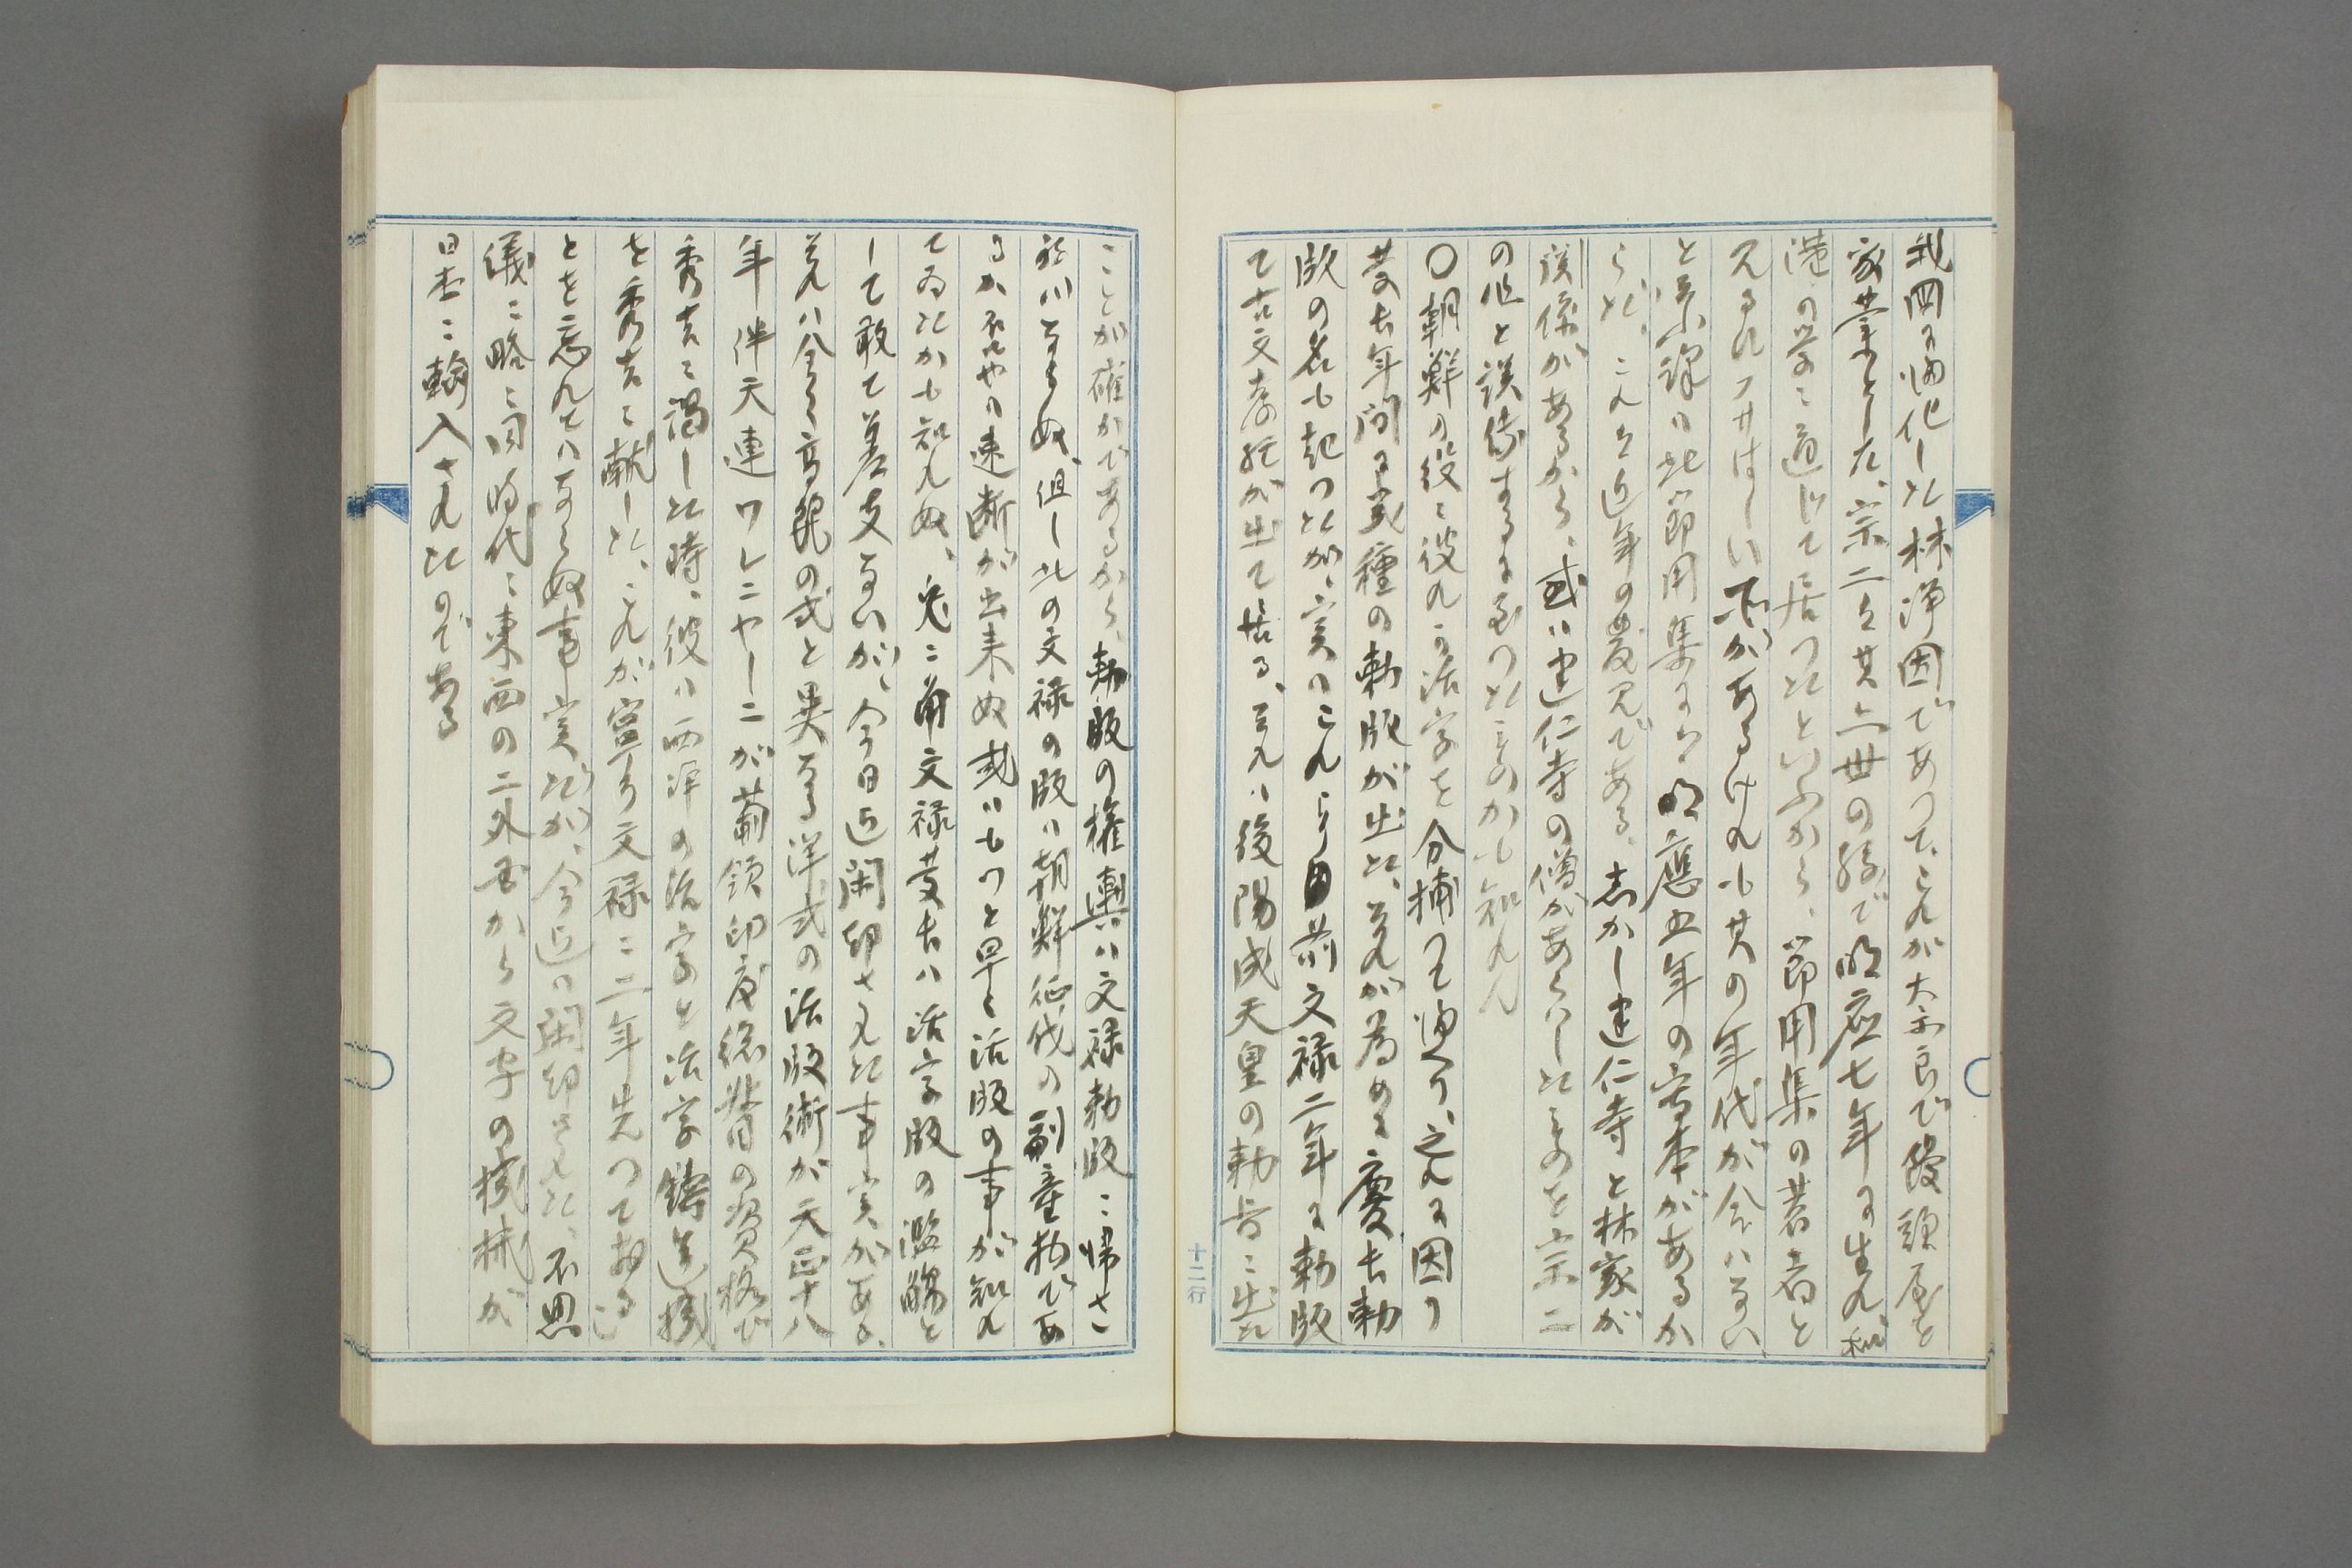 我国に帰化した林浄因であつて、これが大奈良で饅頭屋を
家業とした、宗二は其六世の孫で明応七年に生れ、和
漢の学に通じて居つたといふから、節用集の著者と
見るはフサはしい所があるけれ共其の年代が合はない
と云ふ訳は此節用集には明応五年の写本があるか
らだ、これは近年の発見である、しかし建仁寺と林家が
関係があるから、或は建仁寺の僧があらはしたものを宗二
の作と誤伝するに至つたものかも知れん
〇朝鮮の役に彼れの活字を分捕つて帰へり、之れに因り
慶長年間に幾種の勅版が出た、それが為めに慶長勅
版の名も起つたが、実はこれより前文禄二年に勅版
て古文孝経が出て居る、それは後陽成天皇の勅旨に出た
ことが確かであるから、勅版の権輿は文禄勅版に帰さ
ねばならぬ、但し此の文禄の版は朝鮮征伐の副産物であ
るか否やの速断が出来ぬ或はもつと早く活版の事が知れ
てゐたかも知れぬ、兎に角文禄慶長は活字版の濫觴と
して敢て差支ないが、今日近聞却された事実がある、
それは全く高麗の式と異なる洋式の活版術が天正十八
年伴天連ワレニヤーニが葡領印度総督の資格で
秀吉に謁した時、彼は西洋の活字と活字鋳造機
を秀吉に献した、これが寧ろ文禄に二年先つて居るこ
とを忘れてはならぬ事実だが、今迄は閑却された、不思
儀に略に同時代に東西の二外国から文字の機械が
日本に輸入されたのである
十二行